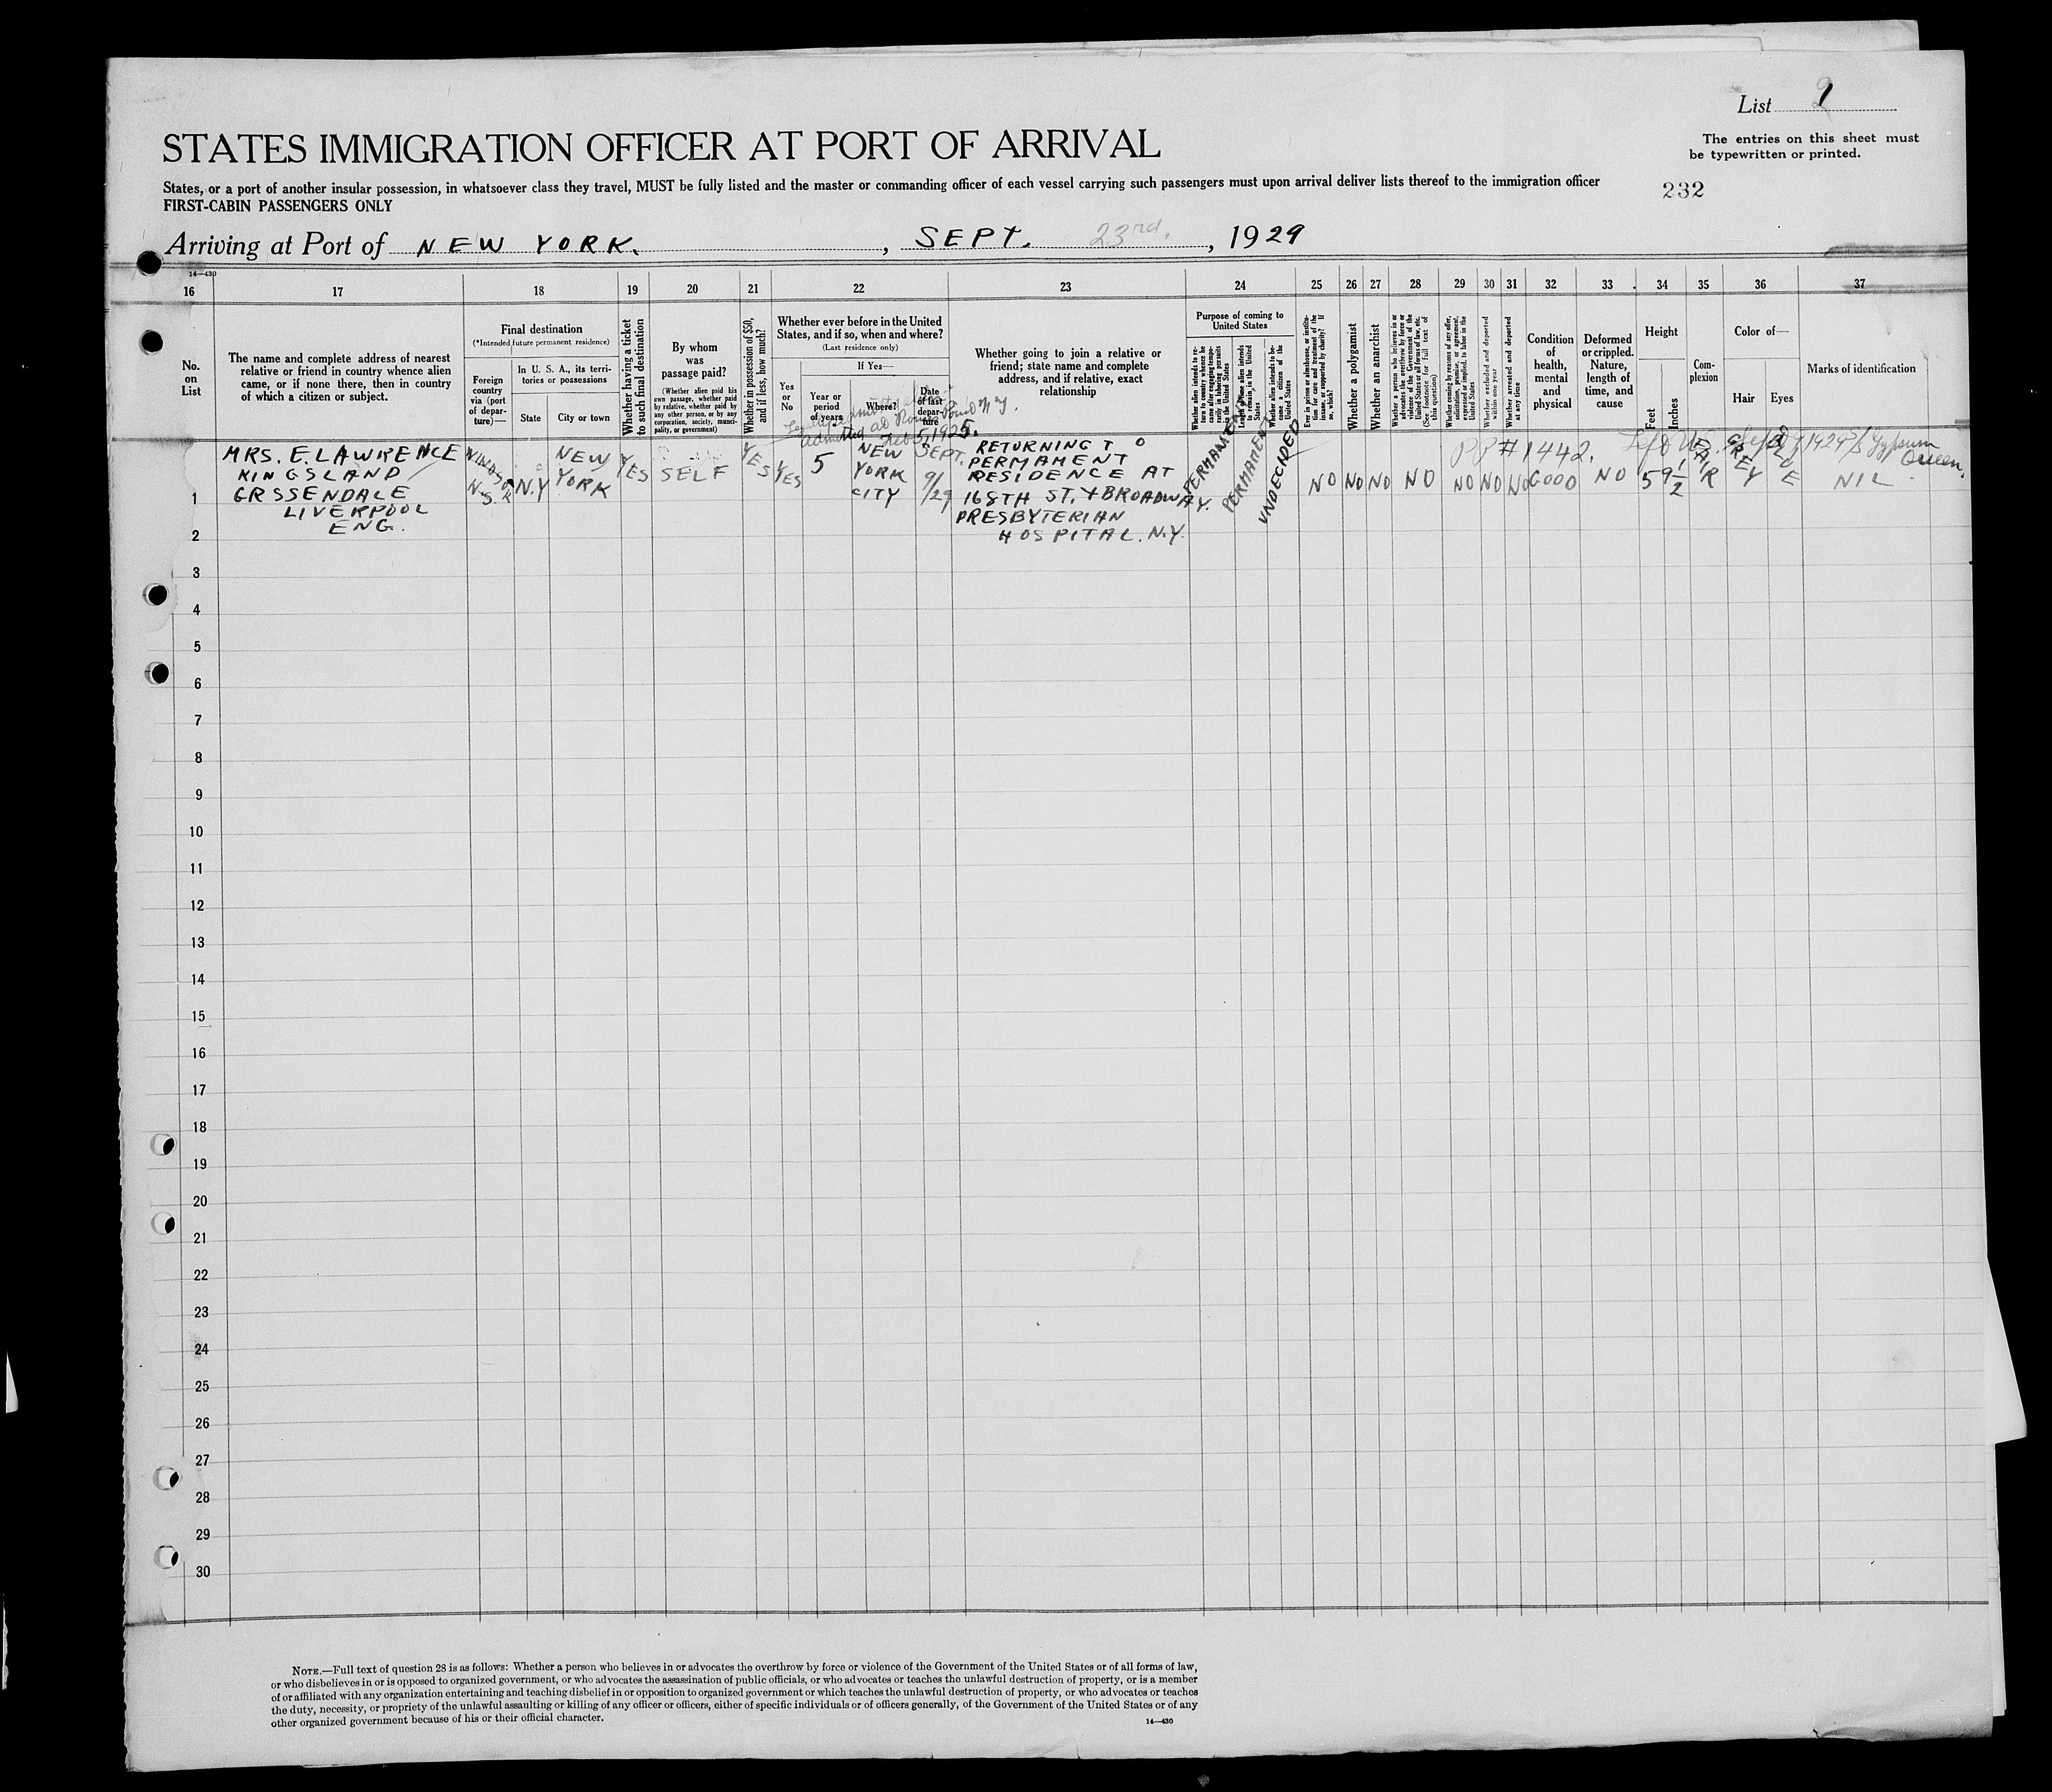 List 9
STATES IMMIGRATION OFFICER AT PORT OF ARRIVAL
The entries on this sheet must
be typewritten or printed.
States, or a port of another insular possession, in whatsoever class they travel, MUST be fully listed and the master or commanding officer of each vessel carrying such passengers must upon arrival deliver lists thereof to the immigration officer
FIRST-CABIN PASSENGERS ONLY
232
Arriving at Port of NEW YORK. , SEPT. 23rd. , 1929
14—430
16 17 18 19 20 21 22 23 24 25 26 27 28 29 30 31 32 33 34 35 36 37
No.
on
List
The name and complete address of nearest
relative or friend in country whence alien
came, or if none there, then in country
of which a citizen or subject.
Final destination
(*Intended future permanent residence)
Foreign
country
via (port
of depar-
ture)—
In U. S. A., its terri-
tories or possessions
State
City or town
Whether having a ticket
to such final destination
By whom
was
passage paid?
(Whether alien paid his
own passage, whether paid
by relative, whether paid by
any other person, or by any
corporation, society, munici-
pality, or government)
Whether in possession of $50,
and if less, how much?
Whether ever before in the United
States, and if so, when and where?
(Last residence only)
Yes
or
No
If Yes—
Year or
period
of years
Where?
Date
of last
depar-
ture
admitted at Rouses Point N Y.
Feb 5, 1925.
Whether going to join a relative or
friend; state name and complete
address, and if relative, exact
relationship
Purpose of coming to
United States
Whether alien intends to re-
turn to country whence he
came after engaging tempo-
rarily in laboring pursuits
in the United States
Length of time alien intends
to remain in the United
States
Whether alien intends to be-
come a citizen of the
United States
Ever in prison or almshouse, or institu-
tion for care and treatment of the
insane, or supported by charity? If
so, which?
Whether a polygamist
Whether an anarchist
Whether a person who believes in or
advocates the overthrow by force or
violence of the Government of the
United States or all forms of law, etc.
(See footnote for full text of
this question)
Whether coming by reasons of any offer,
solicitation, promise, or agreement,
expressed or implied, to labor in the
United States
Whether excluded and deported
within one year
Whether arrested and deported
at any time
Condition
of
health,
mental
and
physical
Deformed
or crippled.
Nature,
length of
time, and
cause
Height
Feet
Inches
Com-
plexion
Color of—
Hair
Eyes
Marks of identification
PP #1442. 1929 S/S Gypsum
Queen.
1
MRS. E. LAWRENCE
KINGSLAND
GRSSENDALE
LIVERPOOL
ENG.
WINDSOR
N.S.
N.Y
NEW
YORK
YES
SELF
YES
YES
5
NEW
YORK
CITY
SEPT.
9/29
RETURNING TO
PERMAMENT
RESIDENCE AT
168TH ST. & BROADWAY.
PRESBYTERIAN
HOSPITAL. N.Y.
PERMAMENT
PERMAMENT
UNDECIDED
NO NO NO NO NO NO NO GOOD NO 5 9 1/2 FAIR GREY BLUE NIL
2
3
4
5
6
7
8
9
10
11
12
13
14
15
16
17
18
19
20
21
22
23
24
25
26
27
28
29
30
NOTE.—Full text of question 28 is as follows: Whether a person who believes in or advocates the overthrow by force or violence of the Government of the United States or of all forms of law,
or who disbelieves in or is opposed to organized government, or who advocates the assassination of public officials, or who advocates or teaches the unlawful destruction of property, or is a member
of or affiliated with any organization entertaining and teaching disbelief in or opposition to organized government or which teaches the unlawful destruction of property, or who advocates or teaches
the duty, necessity, or propriety of the unlawful assaulting or killing of any officer or officers, either of specific individuals or of officers generally, of the Government of the United States or of any
other organized government because of his or their official character.
14—430